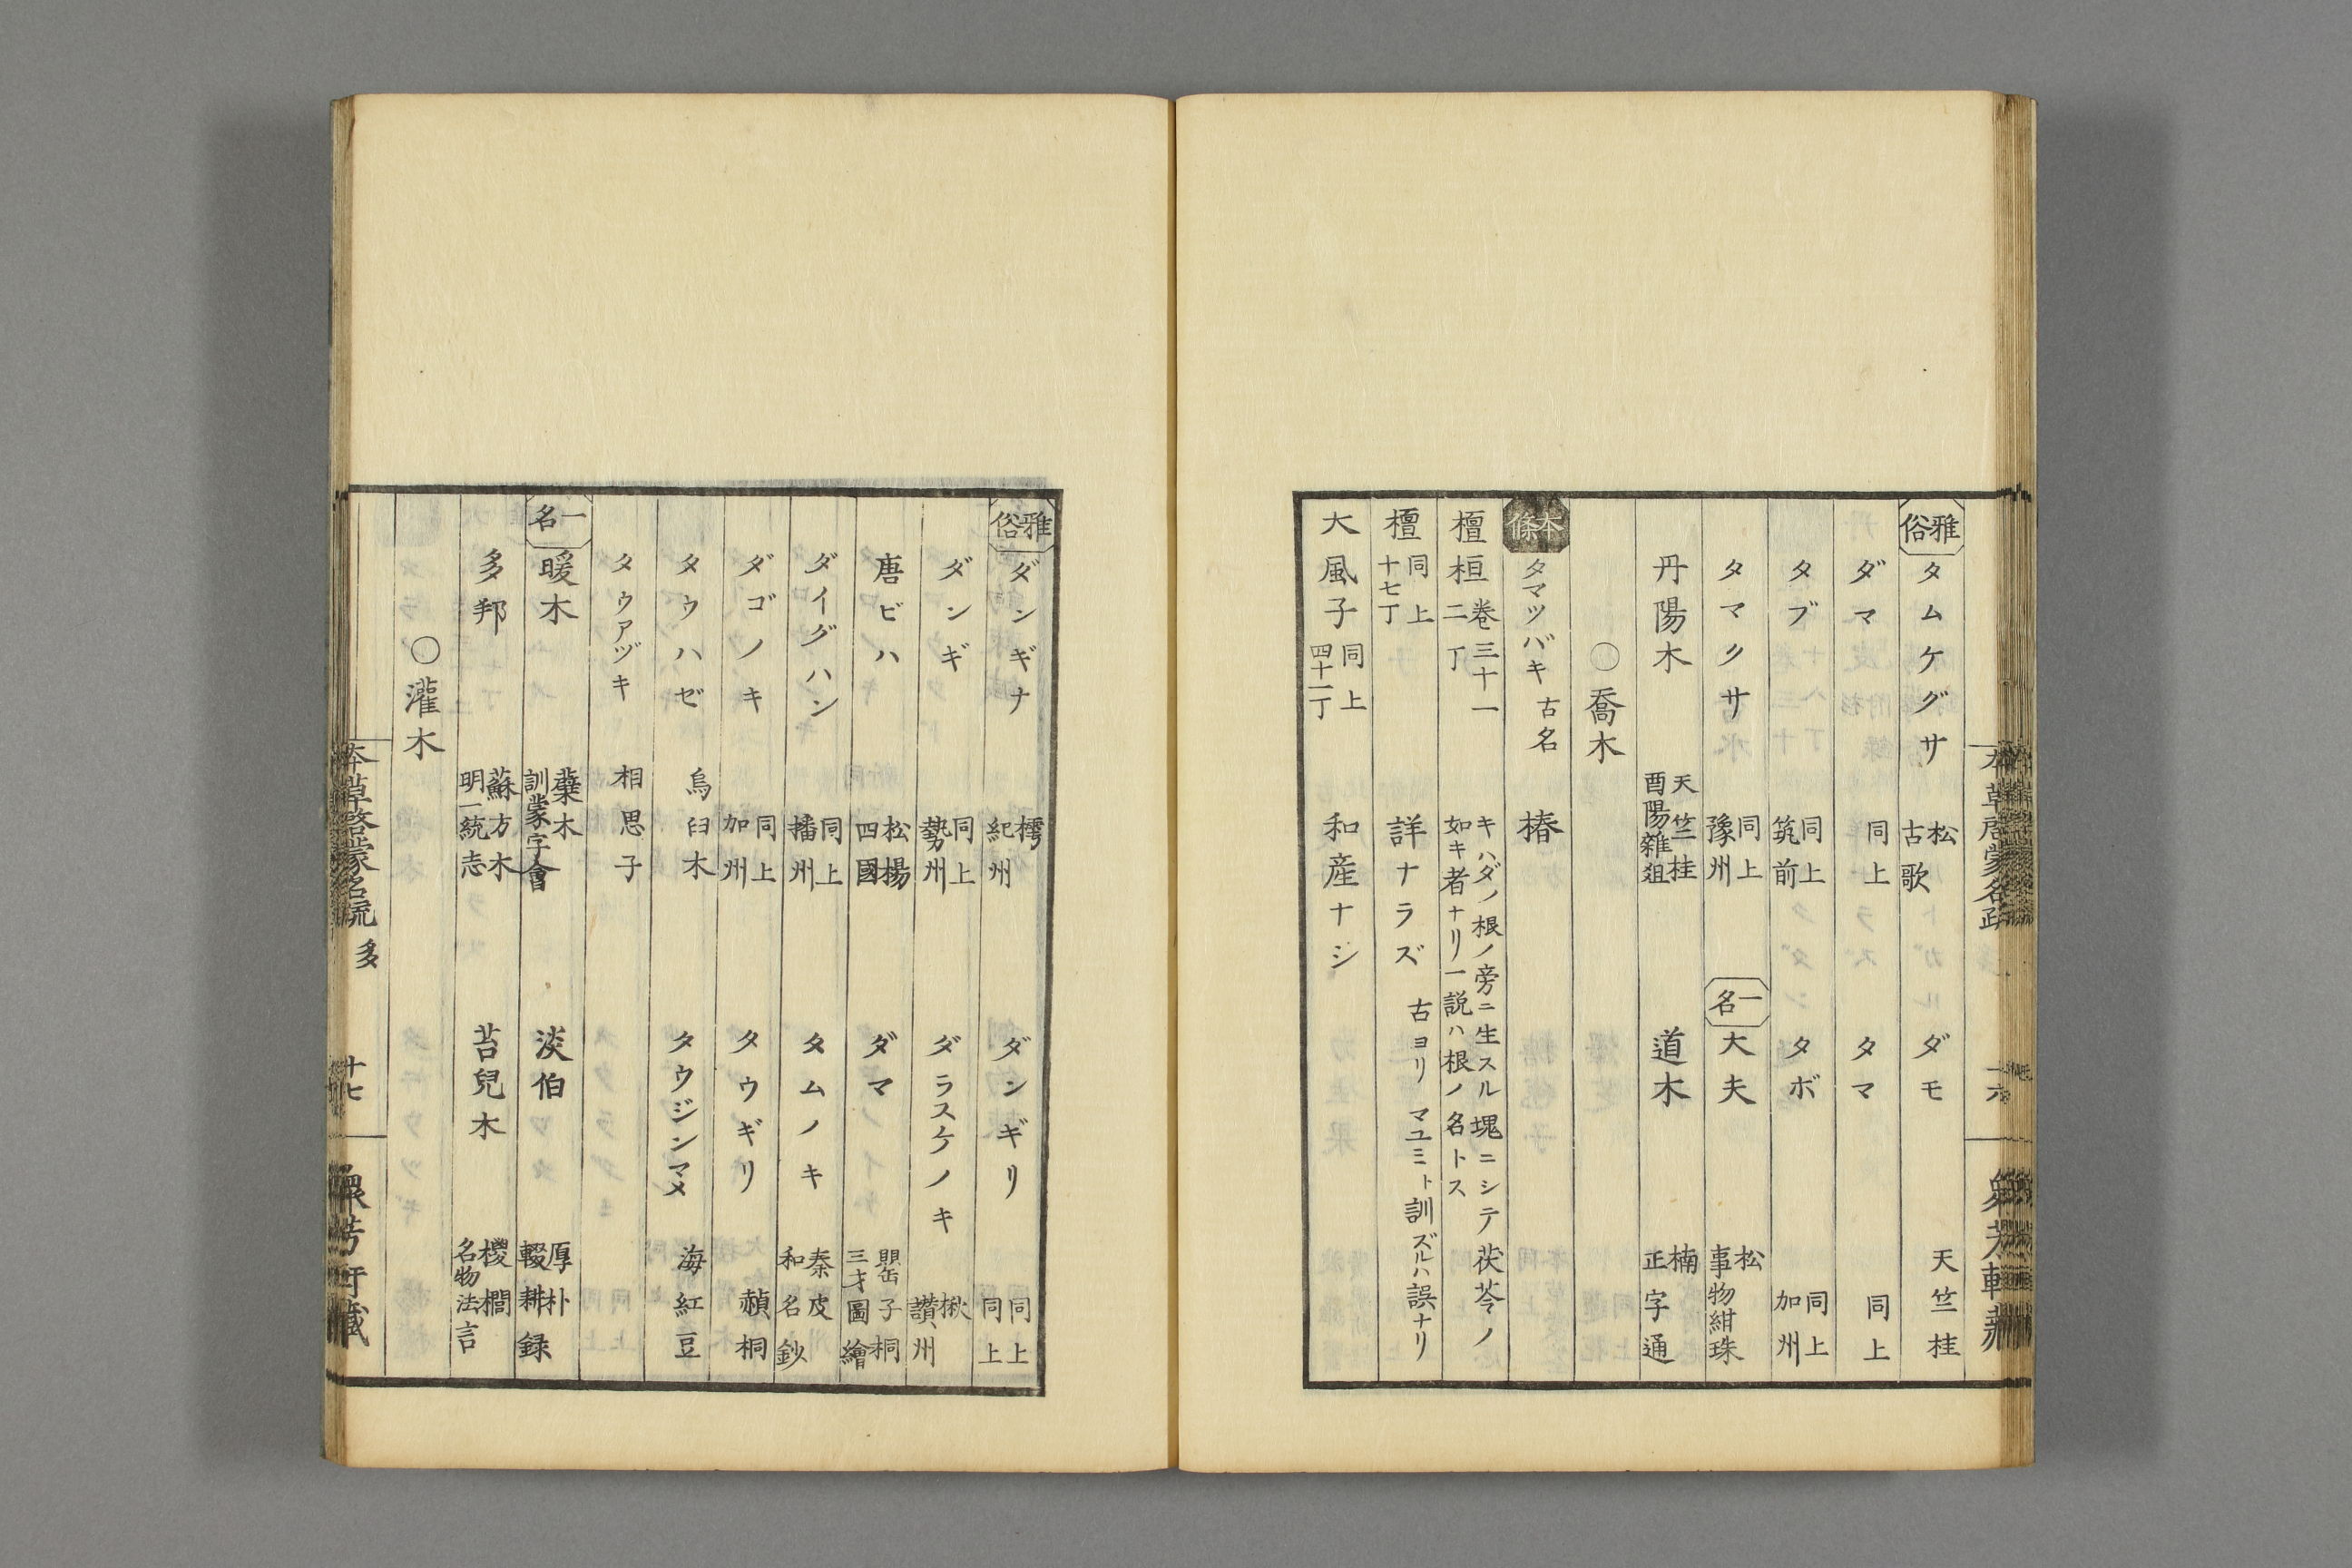 雅俗 タムケグサ 松 古歌 ダモ 天竺桂
ダマ 同上 タマ 同上
タブ 同上 筑前 タボ 同上 加州
タマクサ 同上 豫州 一名 大夫 松 事物紺珠
丹陽木 天竺桂 酉陽雜俎 道木 楠 正字通
○喬木
本條 タマツバキ 古名 椿
檀桓 卷三十一 二丁 キハダノ根ノ旁ニ生スル塊ニシテ茯苓ノ如キ者ナリ一説ハ根ノ名トス
檀 同上 十七丁 詳ナラズ 古ヨリマユミト訓ズルハ誤ナリ
大風子 同上 四十一丁 和産ナシ
雅俗 ダンギナ 樗 紀州 ダンギリ 同上 同上
ダンギ 同上 勢州 ダラスケノキ 楸 讃州
唐ビハ 松楊 四國 ダマ 罌子桐 三才圖繪
ダイグハン 同上 播州 タムノキ 秦皮 和名鈔
ダゴノキ 同上 加州 タウギリ 赬桐
タウハゼ 烏臼木 タウジンマメ 海紅豆
タウアヅキ 相思子
一名 暖木 蘗木 訓蒙字會 淡伯 厚朴 輟耕録
多邦 蘇方木 明一統志 苔兒木 㮨櫚 名物法言
○灌木
本草啓蒙名疏 多 十七